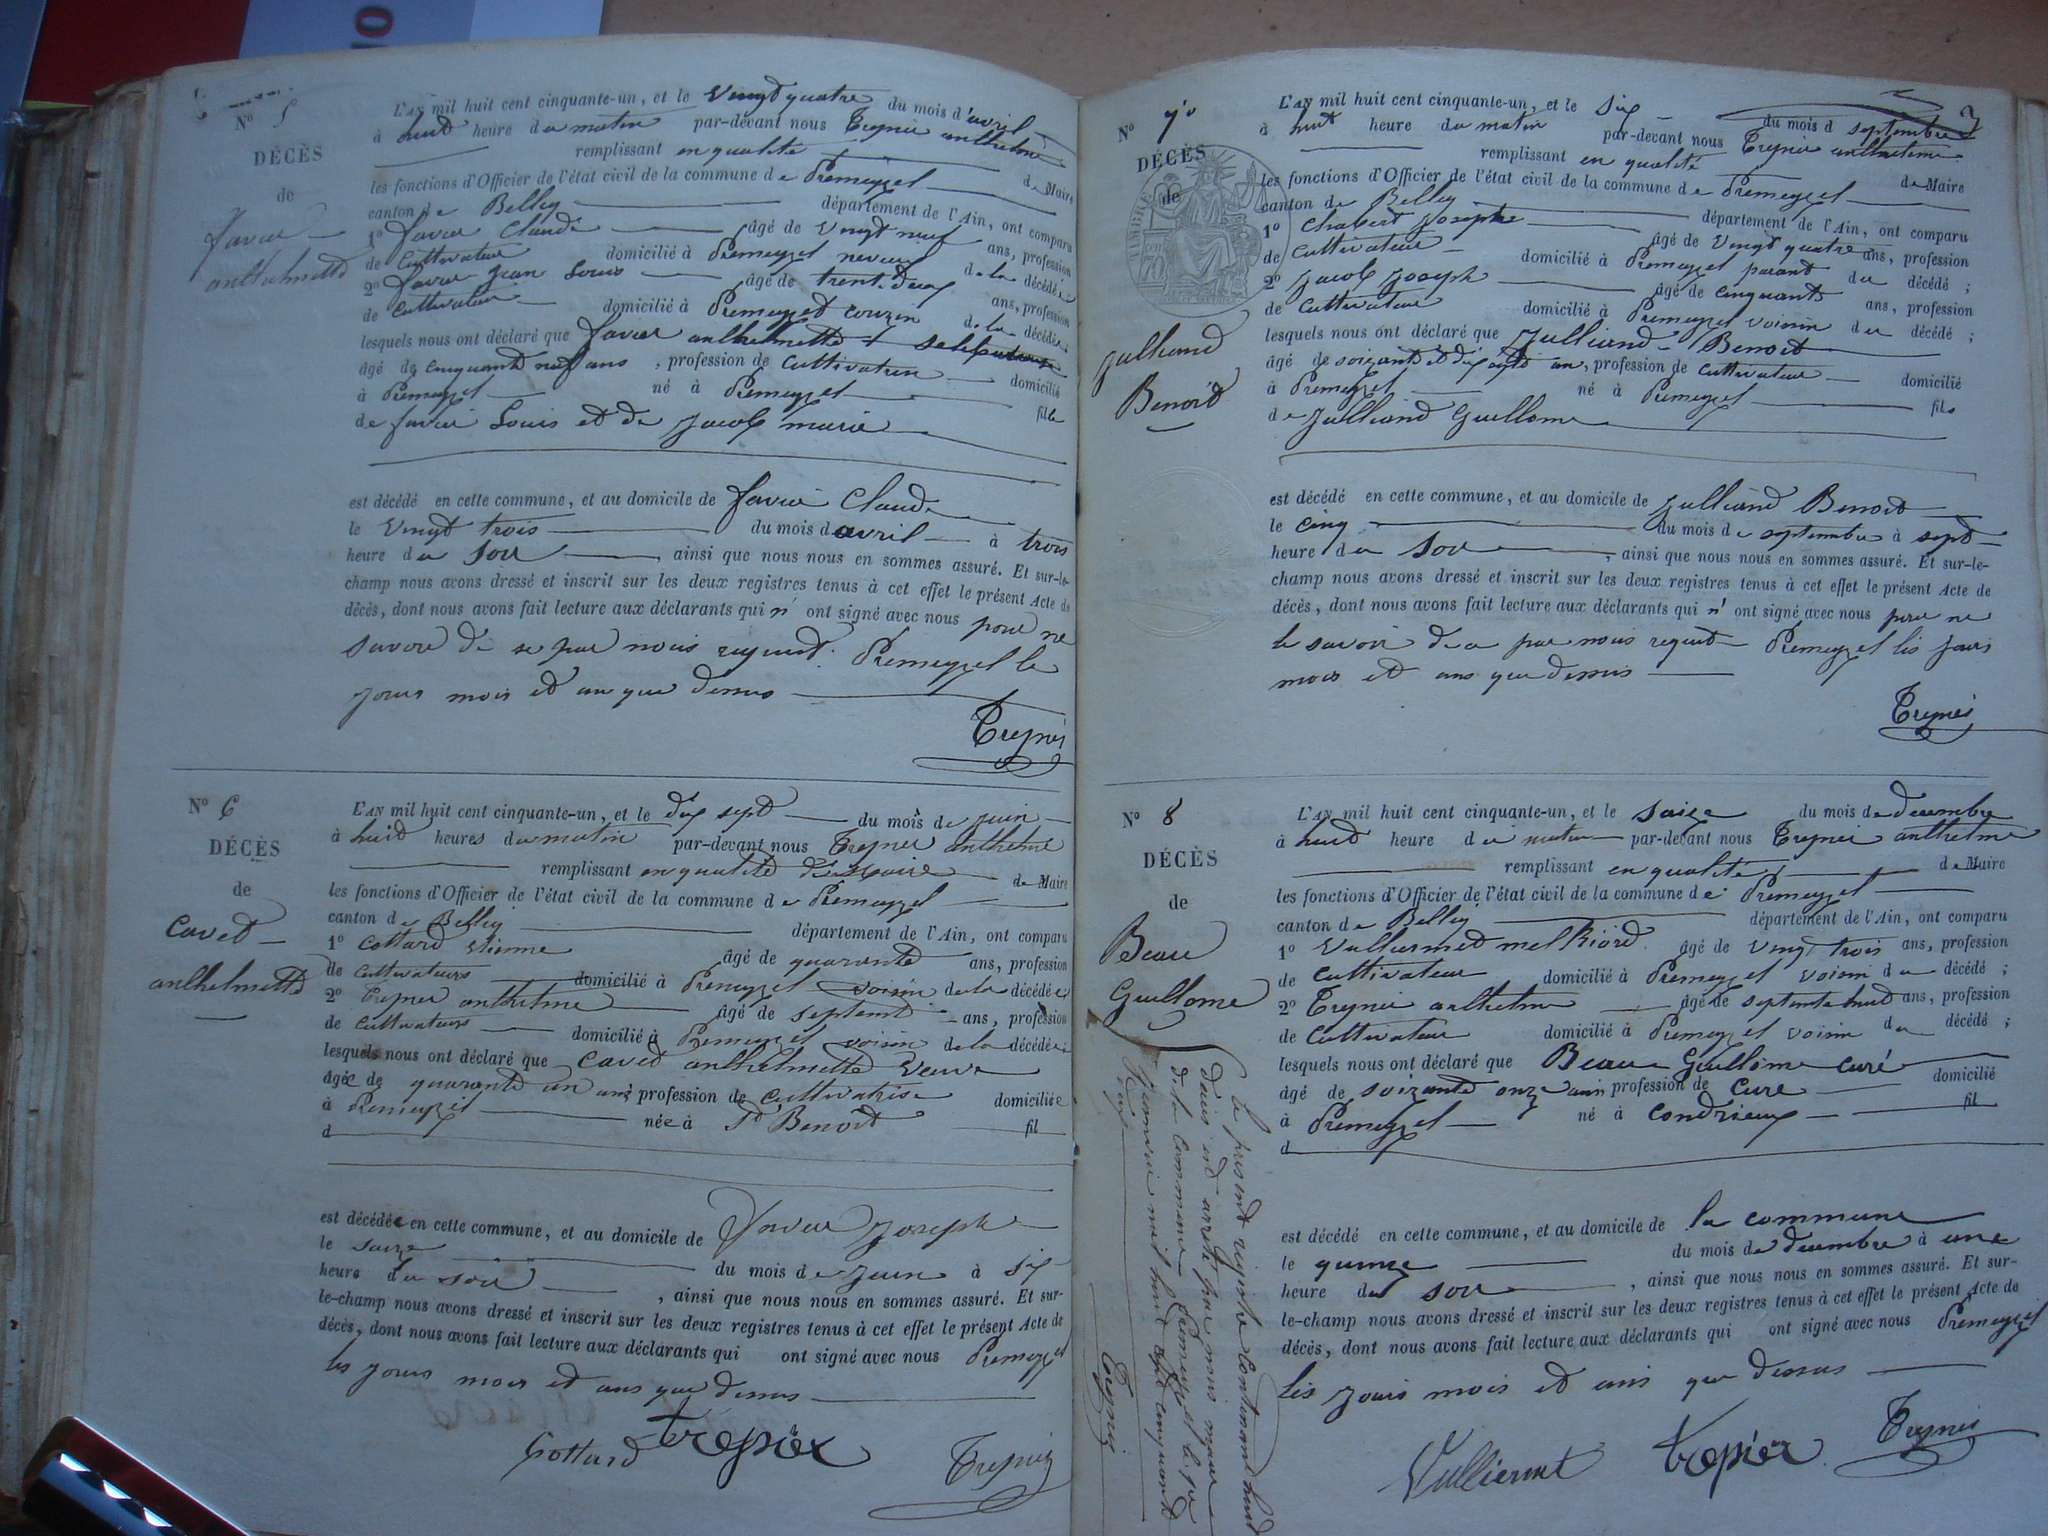 N° 5
DÉCÈS
de
favier
anthelmette
L'AN mil huit cent cinquante-un, et le vingt quatre du mois d'avril
à huit heure du matin par-devant nous Trepier anthelme
remplissant en qualité de Maire
les fonctions d'Officier de l'état civil de la commune de Premeyzel
canton de Belley département de l'Ain, ont comparu
1° favier Claude âgé de vingt neuf ans, profession
de Cultivateur domicilié à Premeyzel neveu de la décédée
2° favier jean Louis âgé de trente deux ans, profession
de Cultivateur domicilié à Premeyzel couzin de la décédée;
lesquels nous ont déclaré que favier anthelmette
âgé de cinquante neuf ans, profession de Cultivatrice domicilié
à Premeyzel né à Premeyzel fille
de favier Louis et de jacob marie
est décédé en cette commune, et au domicile de favier Claude
le vingt trois du mois d avril à trois
heure du soir ainsi que nous nous en sommes assuré. Et sur-le-
champ nous avons dressé et inscrit sur les deux registres tenus à cet effet le présent Acte de
décès, dont nous avons fait lecture aux déclarants qui n' ont signé avec nous pour ne
savoir de se par nous requit. Premeyzel le
jours mois et an que dessus
Trepier
N° 6
DÉCÈS
de
Cavet
anthelmette
L'AN mil huit cent cinquante-un, et le dix sept du mois de juin
à huit heures du matin par-devant nous Trepier anthelme
remplissant en qualité de Maire
les fonctions d'Officier de l'état civil de la commune de Premeyzel
canton de Belley département de l'Ain, ont comparu
1° Cottard Etienne âgé de quarante ans, profession
de Cultivateurs domicilié à Premeyzel voisin de la décédée;
2° Trepier anthelme âgé de septente ans, profession
de Cultivateurs domicilié à Premeyzel voisin de la décédée;
lesquels nous ont déclaré que Cavet anthelmette veuve
âgée de quarante un ans profession de Cultivatrise domiciliée
à Premeyzel née à St Benoit fil
d
est décédée en cette commune, et au domicile de favier joseph
le saize du mois de juin à six
heure du soir, ainsi que nous nous en sommes assuré. Et sur-
le-champ nous avons dressé et inscrit sur les deux registres tenus à cet effet le présent Acte de
décès, dont nous avons fait lecture aux déclarants qui ont signé avec nous Premeyzel
les jours mois et ans que dessus
Cottard trepier Trepier
N° 7°
DÉCÈS
de
julliand
Benoit
L'AN mil huit cent cinquante-un, et le six du mois d septembre
à huit heure du matin par-devant nous Trepier anthelme
remplissant en qualité de Maire
les fonctions d'Officier de l'état civil de la commune de Premeyzel
canton de Belley département de l'Ain, ont comparu
1° Chabert joseph âgé de vingt quatre ans, profession
de Cultivateur domicilié à Premeyzel parant du décédé;
2° jacob joseph âgé de cinquante ans, profession
de Cultivateur domicilié à Premeyzel voisin du décédé;
lesquels nous ont déclaré que julliand Benoit
âgé de soizante et dix an, profession de Cultivateur domicilié
à Premeyzel né à Premeyzel fils
de julliand Guillome
est décédé en cette commune, et au domicile de julliand Benoit
le cinq du mois de septembre à sept
heure du soir, ainsi que nous nous en sommes assuré. Et sur-le-
champ nous avons dressé et inscrit sur les deux registres tenus à cet effet le présent Acte de
décès, dont nous avons fait lecture aux déclarants qui n' ont signé avec nous pour ne
le savoir de a par nous requit Premeyzel les jours
mois et ans que dessus
Trepier
N° 8
DÉCÈS
de
Beau
Guillome
L'AN mil huit cent cinquante-un, et le saize du mois de decembre
à huit heure du matin par-devant nous Trepier anthelme
remplissant en qualité de Maire
les fonctions d'Officier de l'état civil de la commune de Premeyzel
canton de Belley département de l'Ain, ont comparu
1° Vulliermet melkiord âgé de vingt trois ans, profession
de Cultivateur domicilié à Premeyzel voisin du décédé;
2° Trepier anthelme âgé de septente huit ans, profession
de Cultivateur domicilié à Premeyzel voisin du décédé;
lesquels nous ont déclaré que Beau Guillome curé
âgé de soizante onze ans profession de Cure domicilié
à Premeyzel né à Condrieux fil
d
est décédé en cette commune, et au domicile de la commune
le quinze du mois de decembre à une
heure du soir, ainsi que nous nous en sommes assuré. Et sur-
le-champ nous avons dressé et inscrit sur les deux registres tenus à cet effet le présent Acte de
décès, dont nous avons fait lecture aux déclarants qui ont signé avec nous Premeyzel
les jours mois et ans que dessus
Vulliermet trepier Trepier
le présent registre Contenant huit
décès est arreté par nous maire
de la Commune Premeyzel le
janvier mil huit cent cinquante
Trepier